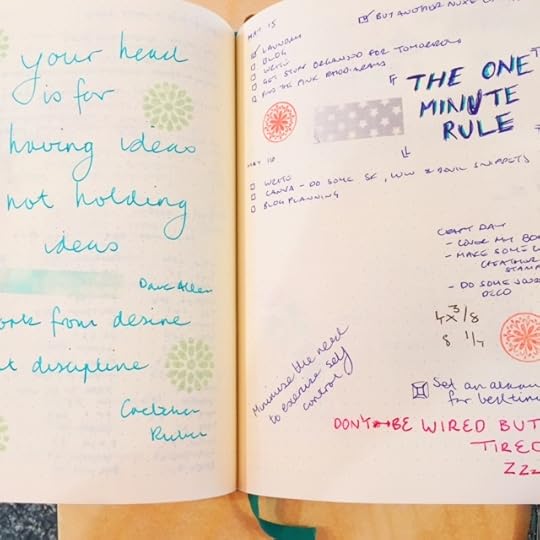 your head
is for
having ideas
not holding
ideas
Dave Allen
from desire
discipline
Gretchen
Rubin
MAY 15
BUT ANOTHER
LAUNDRY
BLOG
WRITE
GET STUFF ORGANISED FOR TOMORROW
FIND THE PINK
THE ONE
MINUTE
RULE
MAY 16
WRITE
CANVA - DO SOME SK, WW & SNIPPETS
BLOG PLANNING
CRAFT DAY
- COVER MY
- MAKE SOME
- DO SOME
DECO
4 x 3/8
8 1/4
Minimise the need
to exercise self
control
Set an alarm
for bedtime
DON'T BE WIRED BUT
TIRED
ZZZ